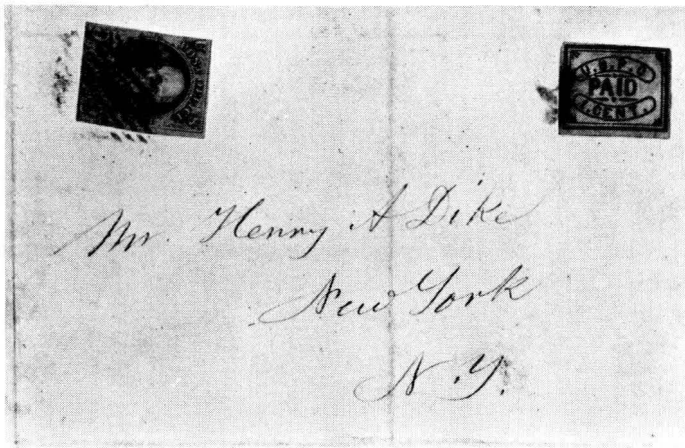 U.S.P.O
PAID
1 CENT.
Mr. Henry A Dike
New York
N.Y.